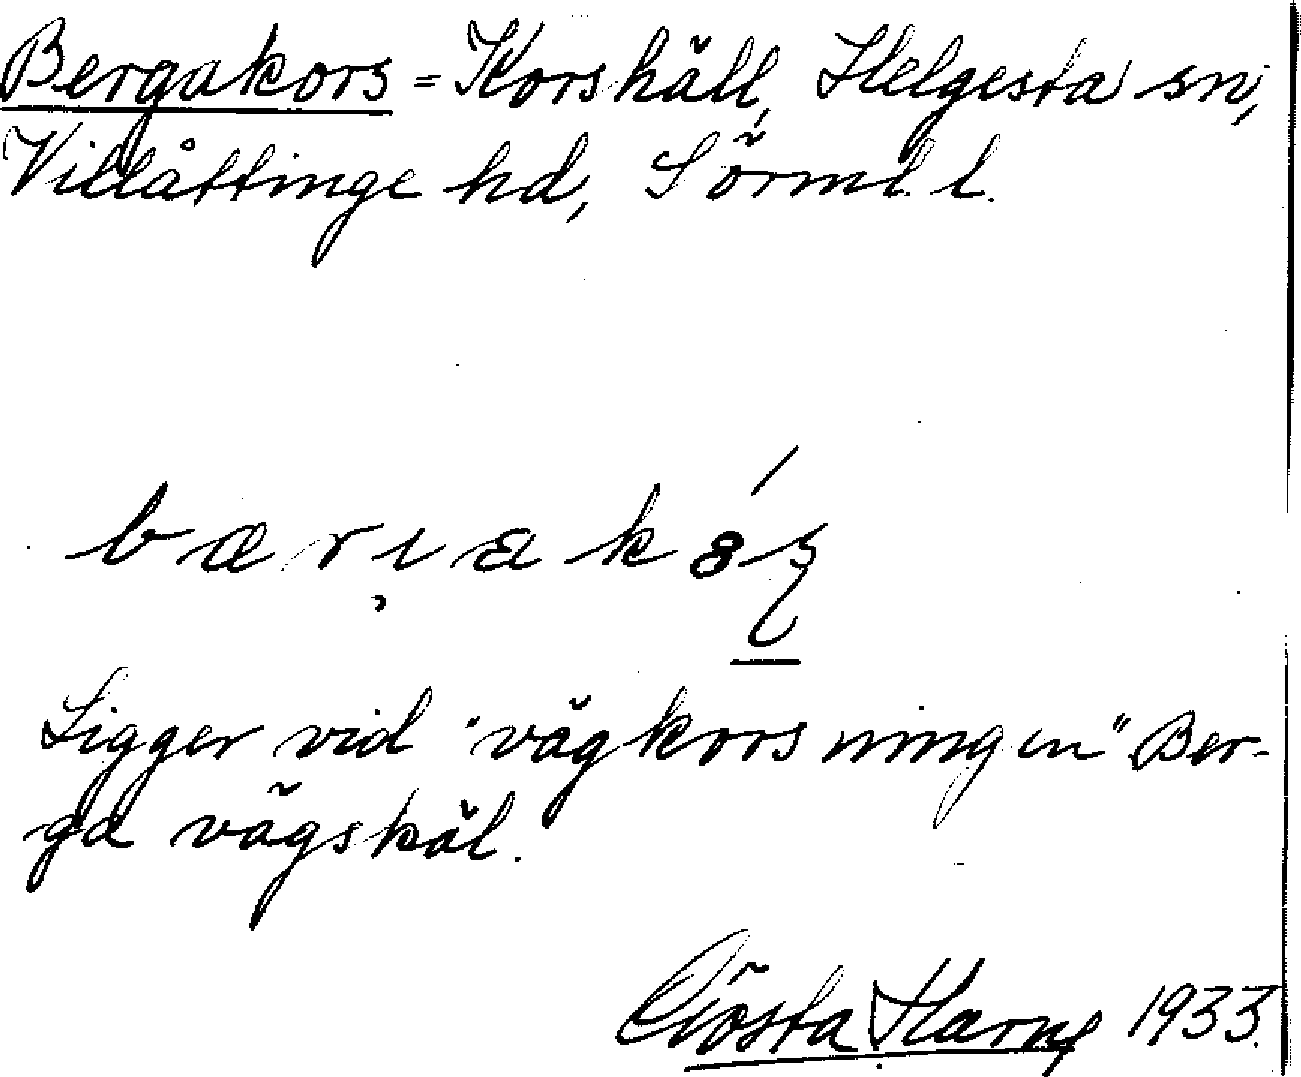 Bergakors = Korshäll, Helgesta sn,
Villåttinge hd, Sörml. l.
Ligger vid "vägkorsningen" Ber-
ga vägskäl.
Gösta 1933.